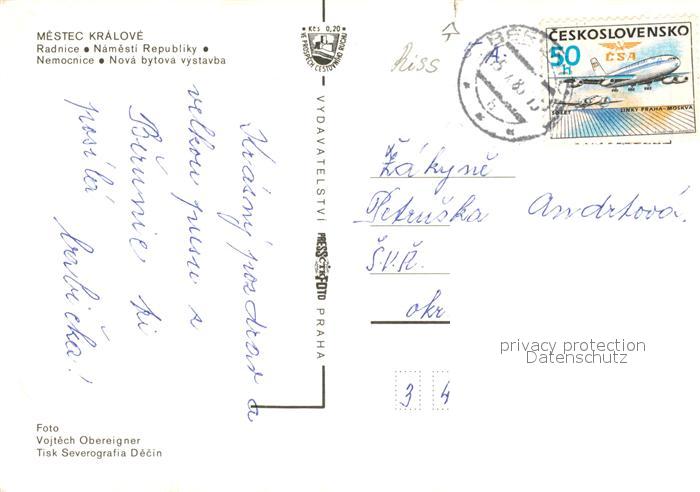 MĚSTEC KRÁLOVÉ
Radnice ● Náměstí Republiky ●
Nemocnice ● Nová bytová výstavba
Kčs 0,20
VE PROSPĚCH CESTOVNÍHO RUCHU
VYDAVATELSTVÍ PRESSFOTO PRAHA
Krásný pozdrav a
velkou pusu z
Běrunic ti
posílá babička!
Riss
A
ČESKOSLOVENSKO
50
h
ČSA
50 LET LINKY PRAHA-MOSKVA
Žákyně
Petruška Andrtová
Š.V.Ř.
okr
3 4
privacy protection
Datenschutz
Foto
Vojtěch Obereigner
Tisk Severografia Děčín